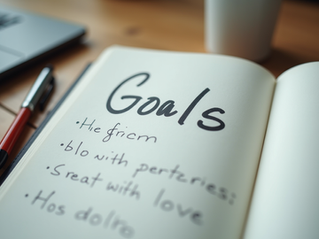 Goals
•He fricm
•blo with perteries:
•Sreat with love
•Hos dolro